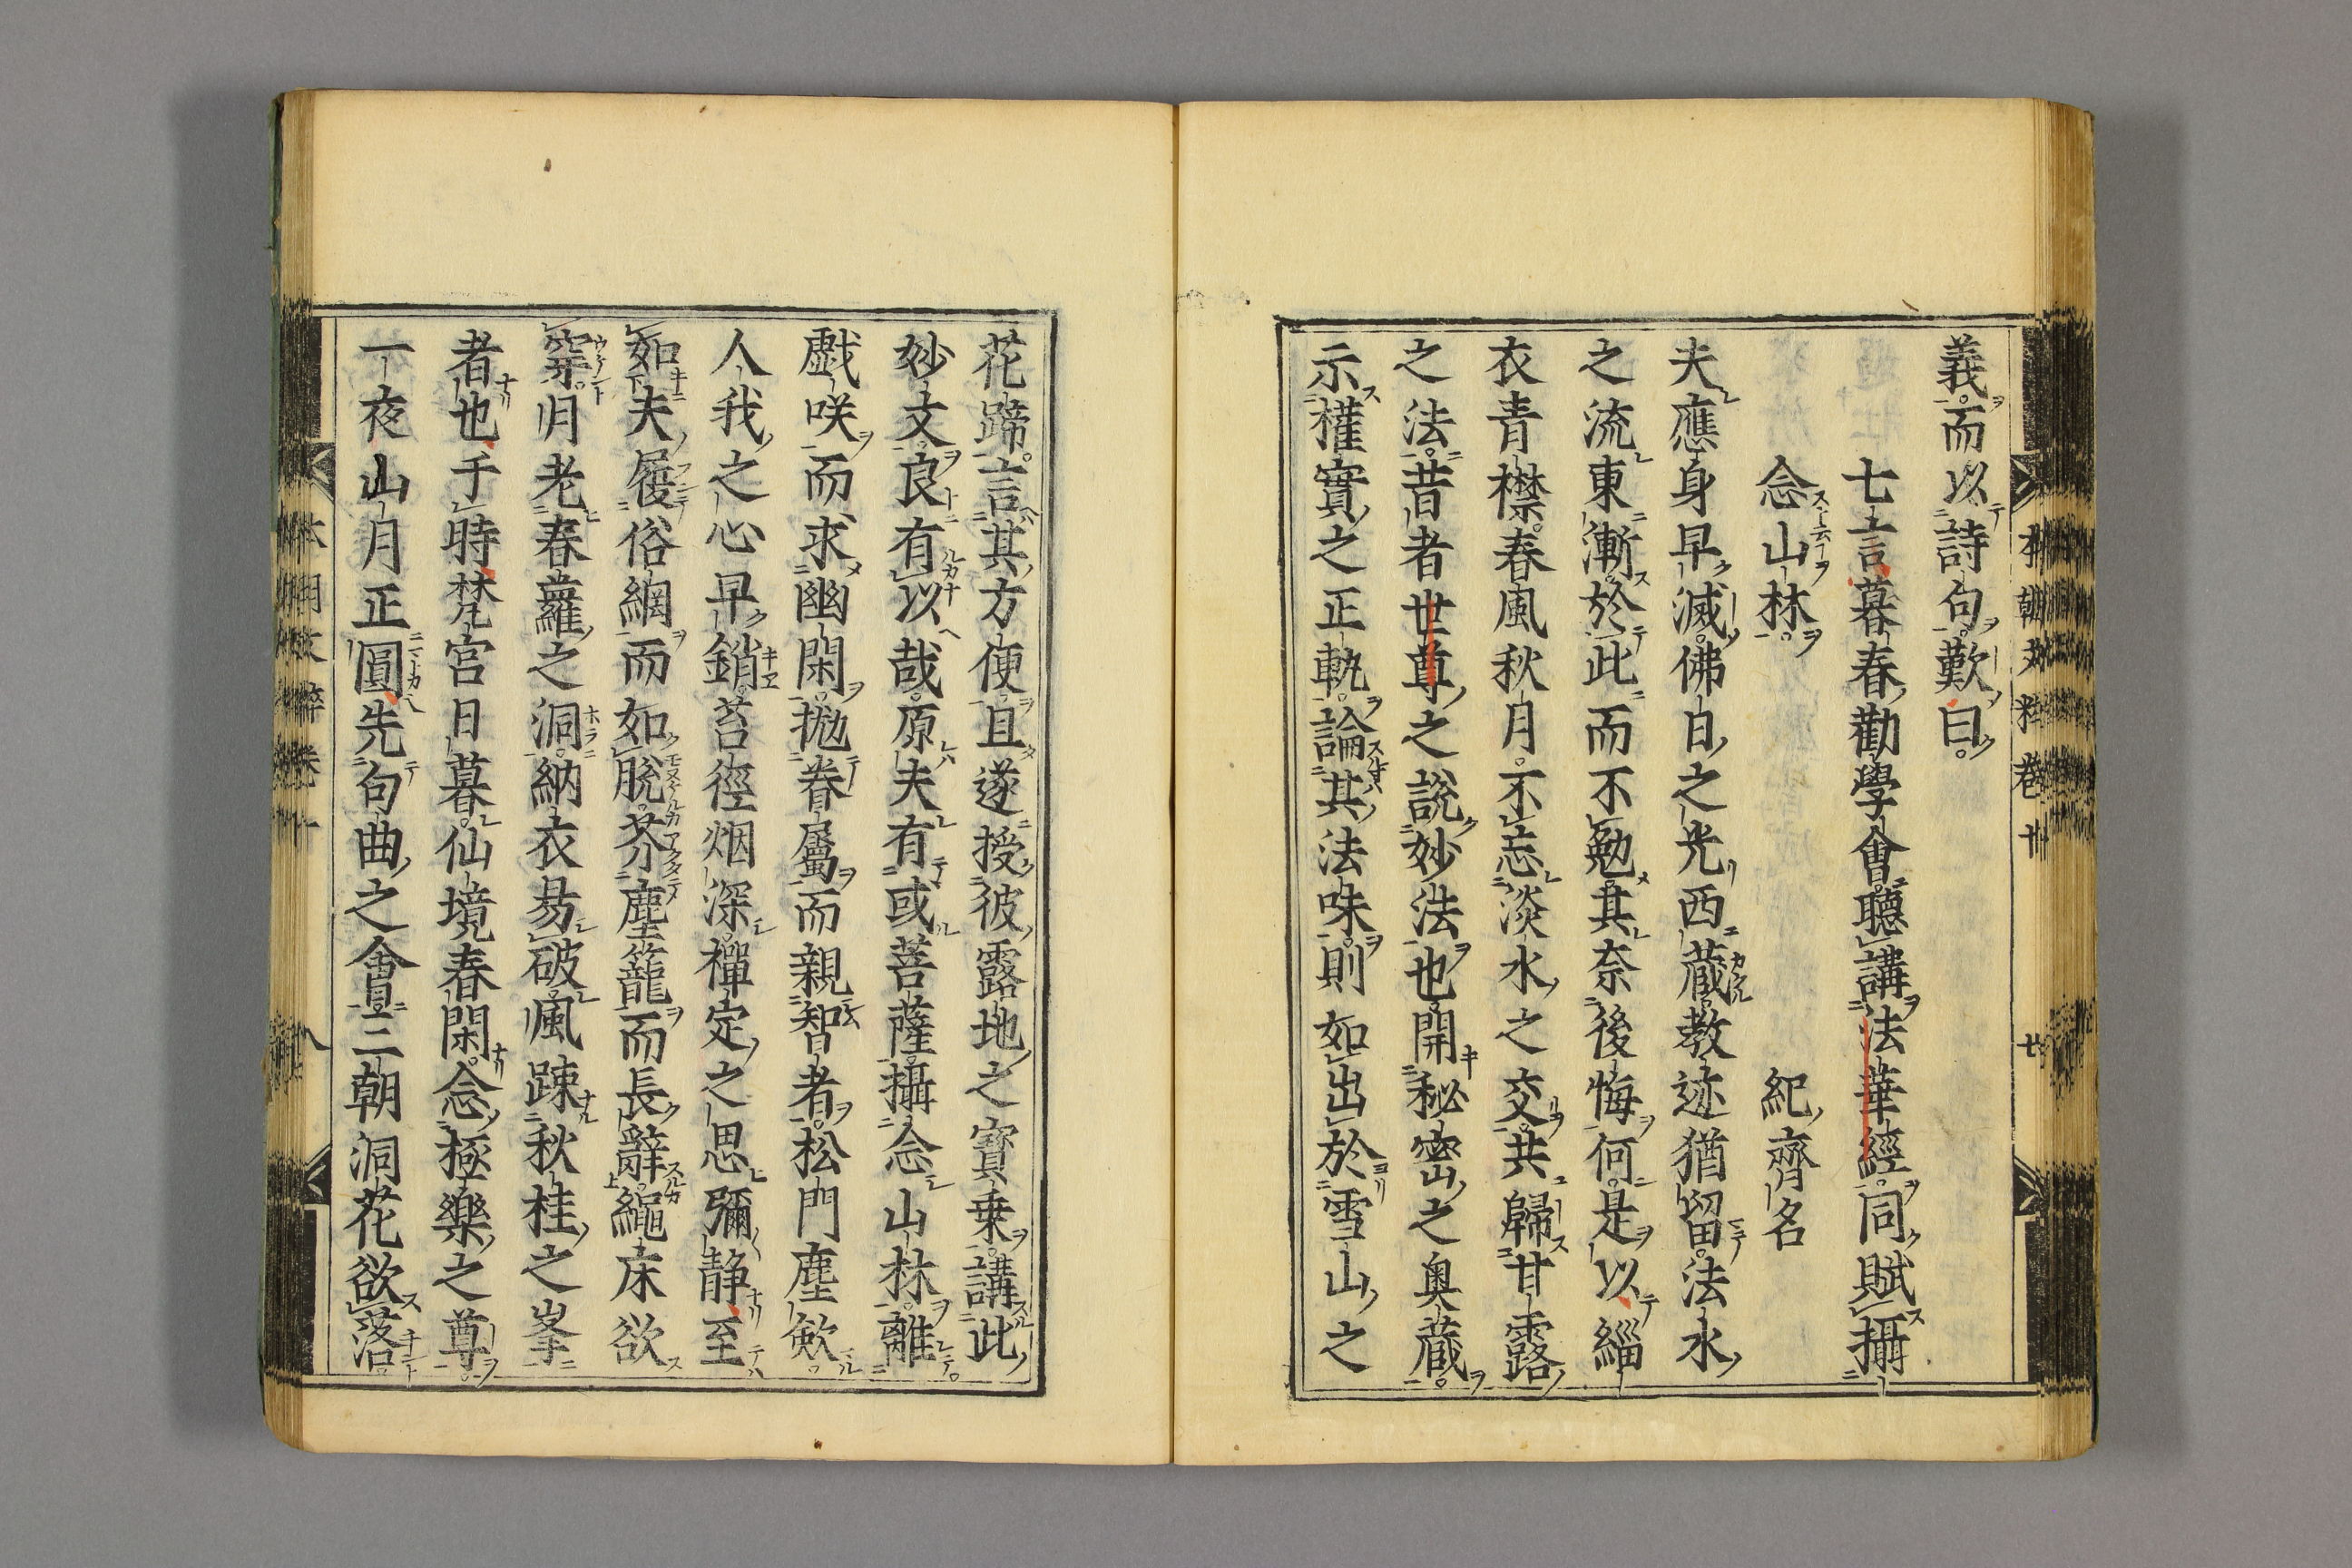 義而以詩句歎曰
七言暮春勸學會聽講法華經同賦攝
念山林　紀齊名
夫應身早滅佛日之光西蔵教迹猶留法水
之流東漸於此而不勉其奈後悔何是以緇
衣青襟春風秋月不忘淡水之交共歸甘露
之法昔者世尊之說妙法也開秘密之奥蔵
示權實之正軌論其法味則如出於雪山之
花蹄言其方便且遂授彼露地之寳乗講此
妙文良有以哉原夫有或菩薩攝念山林離
戯咲而求幽閑抛眷屬而親智者松門塵歛
人我之心早銷苔徑烟深禪定之思彌静至
如夫履俗網而如脫芥塵籠而長辭繩床欲
穿月老春蘿之洞納衣易破風疎秋桂之峯
者也于時梵宮日暮仙境春閑念極樂之尊
一夜山月正圓先句曲之會三朝洞花欲落
本朝文粹卷十
七